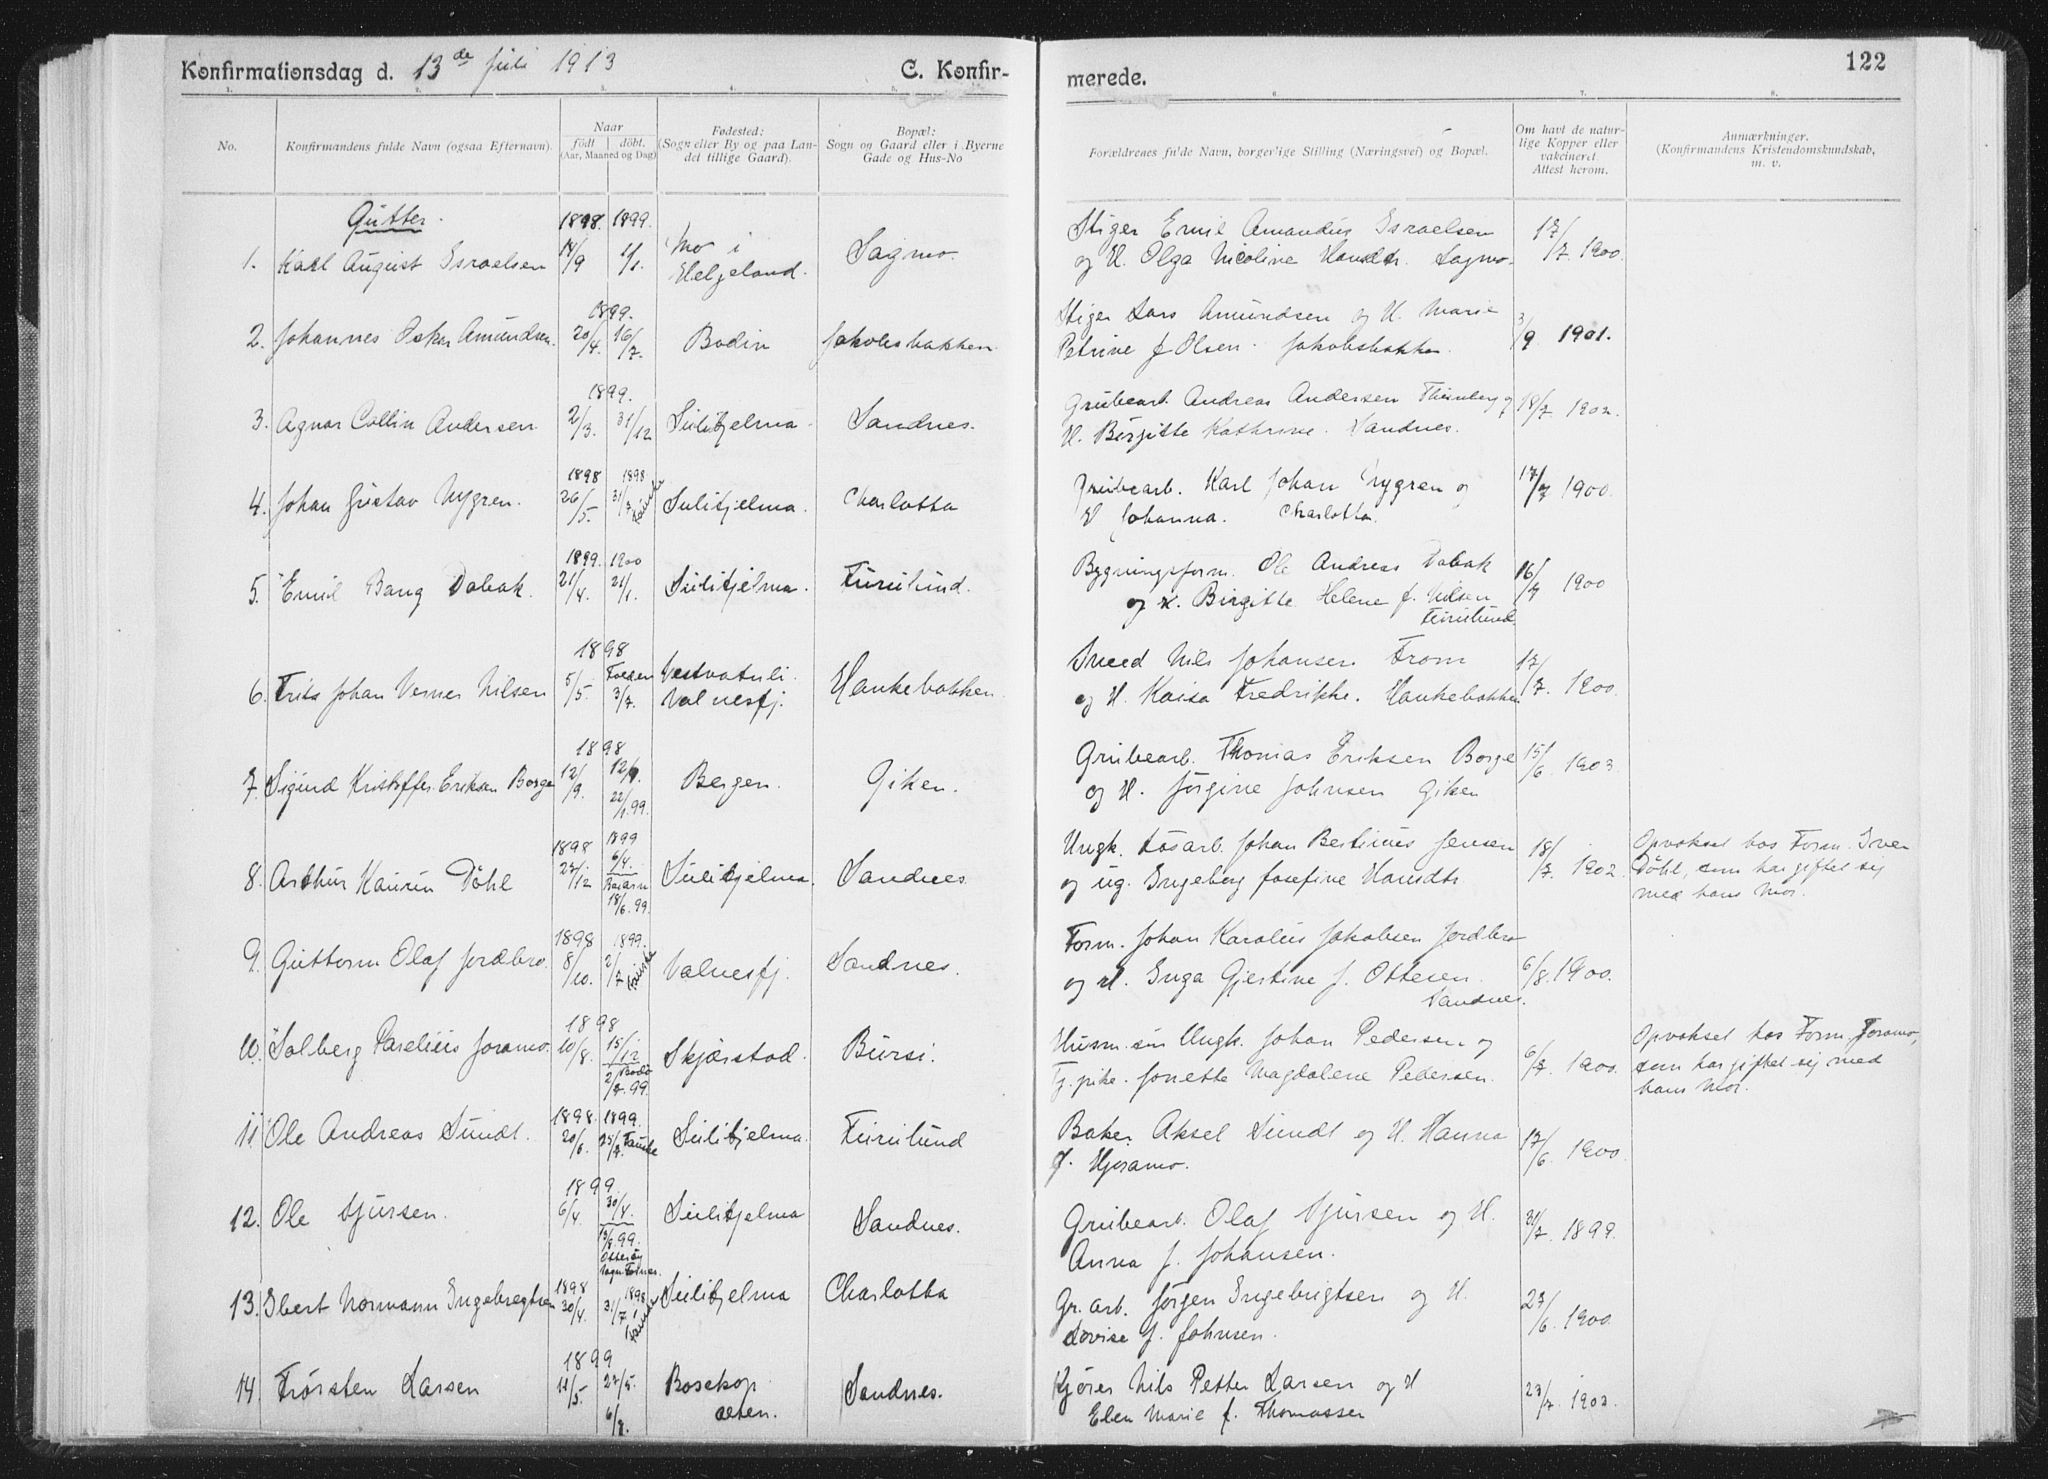 Konfirmationsdag d. 13de Juli 1913
C. Konfir-
merede.
122
No.
Konfirmandens fulde Navn (ogsaa Efternavn).
Naar
født
døbt.
(Aar, Maaned og Dag)
Fødested:
(Sogn eller By og paa Lan-
det tillige Gaard).
Bopæl:
Sogn og Gaard eller i Byerne
Gade og Hus-No
Forældrenes fulde Navn, borgerlige Stilling (Næringsvei) og Bopæl.
Om havt de natur-
lige Kopper eller
vakcineret
Attest herom.
Anmærkninger.
(Konfirmandens Kristendomskundskab,
m. v.
Gutter.
1898. 1899.
1. Karl August Israelsen 14/9 1/1. Mo i Helgeland. Sagmo.
Stiger Emil Amandus Israelsen 17/7 1900.
og H. Olga Nicoline Sagmo.
1899.
2. Johannes Oskar Amundsen. 20/4. 16/7. Bodin Jakobsbakken
Stiger Lars Amundsen og H. Marie 3/9 1901.
Petrine f Olsen. Jakobsbakken.
1899.
3. Agnar Collin Andersen 2/3. 31/12 Sulitjelma. Sandnes.
Grubearb. Andreas Andersen og 18/7 1902.
H. Birgitte Kathrine. Sandnes.
1898 1898
4. Johan Gustav Nygren. 26/5. 31/7 Sulitjelma. Charlotta
Grubearb. Karl Johan Nygren og 17/7 1900.
H Johanna. Charlotta.
1899. 1900
5. Emil Bang Dabak. 21/4. 21/1. Sulitjelma. Furulund.
Bygningsform. Ole Andreas Dabak 16/7 1900
og H. Birgitte Helene f. Nilsen
Furulund.
1898
6. Frits Johan Verner Nilsen 5/5. 3/7. Valnesfj. Hankebakken.
Smed Nils Johansen From 17/7. 1900.
og H. Kaisa Fredrikke. Hankebakken
1898
7. Sigurd Kristoffer Eriksen Borge 12/9. 12/9. 22/1.99. Bergen. Giken.
Grubearb. Thomas Eriksen Borge 15/6. 1903.
og H. Jørgine Johnsen Giken
1898 1899
8. Arthur Kaurin Döhl 27/12 6/4. 18/6.99. Sulitjelma. Sandnes
Ungk. Løsarb. Johan Bertinus Jensen 18/7. 1902.
og ug. Ingeborg Josefine
Opvokset hos Form. Iver
Döhl, som har giftet sig
med hans Mor.
1898 1899.
9. Guttorm Olaf Jordbro. 8/10. 2/7 Valnesfj. Sandnes.
Form. Johan Karolius Jakobsen Jordbro
og H. Inga Gjertine f. Ottesen. 6/8. 1900.
Sandnes.
1898
10. Solberg Parelius Joramo. 10/8. 15/12 Bodø 2/7.99. Skjærstad. Bursi.
Husm.søn Ungk. Johan Pedersen og 6/7. 1900.
Tj.pike. Jonette Magdalene Pedersen.
Opvokset hos Form. Joramo,
som har giftet sig med
hans Mor.
1898. 1899.
11. Ole Andreas Sundt. 20/6. 25/7. Fauske Sulitjelma. Furulund
Baker Aksel Sundt og H. Hanna 17/6. 1900.
f. Hjoramo.
1899.
12. Ole Sjursen. 6/4. 30/4. Sulitjelma Sandnes.
Grubearb. Olaf Sjursen og H. 31/7. 1899.
Anna f. Johansen.
1898 1898
13. Ebert Normann Ingebregtsen 30/4. 31/7 Sulitjelma Charlotta
Gr.arb. Jørgen Ingebrigtsen og H. 27/6. 1900.
Lovise f. Johnsen.
1899
14. Torsten Larsen 11/5. 27/5. Bosekop Alten. Sandnes.
Kjører Nils Petter Larsen og H 23/7. 1902.
Elen Marie f. Thomassen